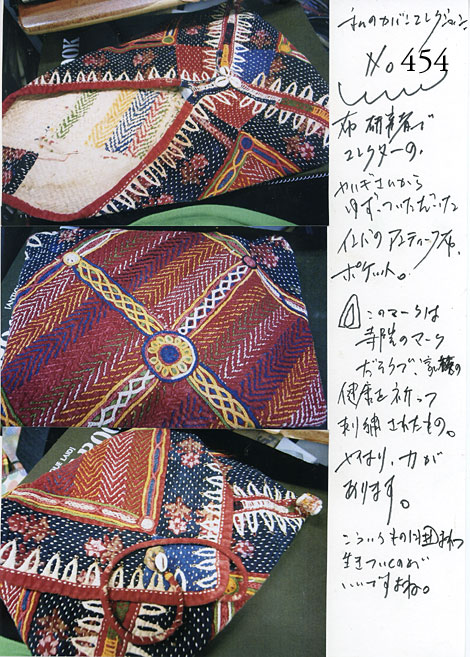 私のカバンコレクション
No 454
布研究者で
コレクターの、
やぎさんから
ゆずっていただいた
インドのアンティーク布、
ポケット。
このマークは
寺院のマーク
だそうで、家族の
健康を祈って
刺繍されたもの。
やはり、力が
あります。
こういうものに囲まれて
生きていくのが
いいですよね。